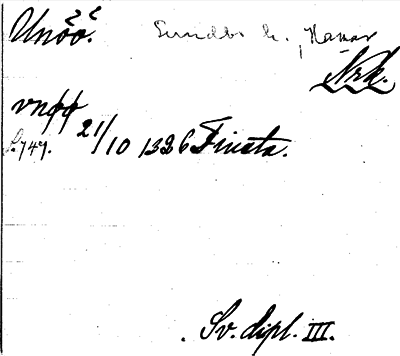 Unöö. Sundbo h., Hamar
Nrk.
vnøø
S. 747. 21/10 1326 Finsta.
Sv. dipl. III.